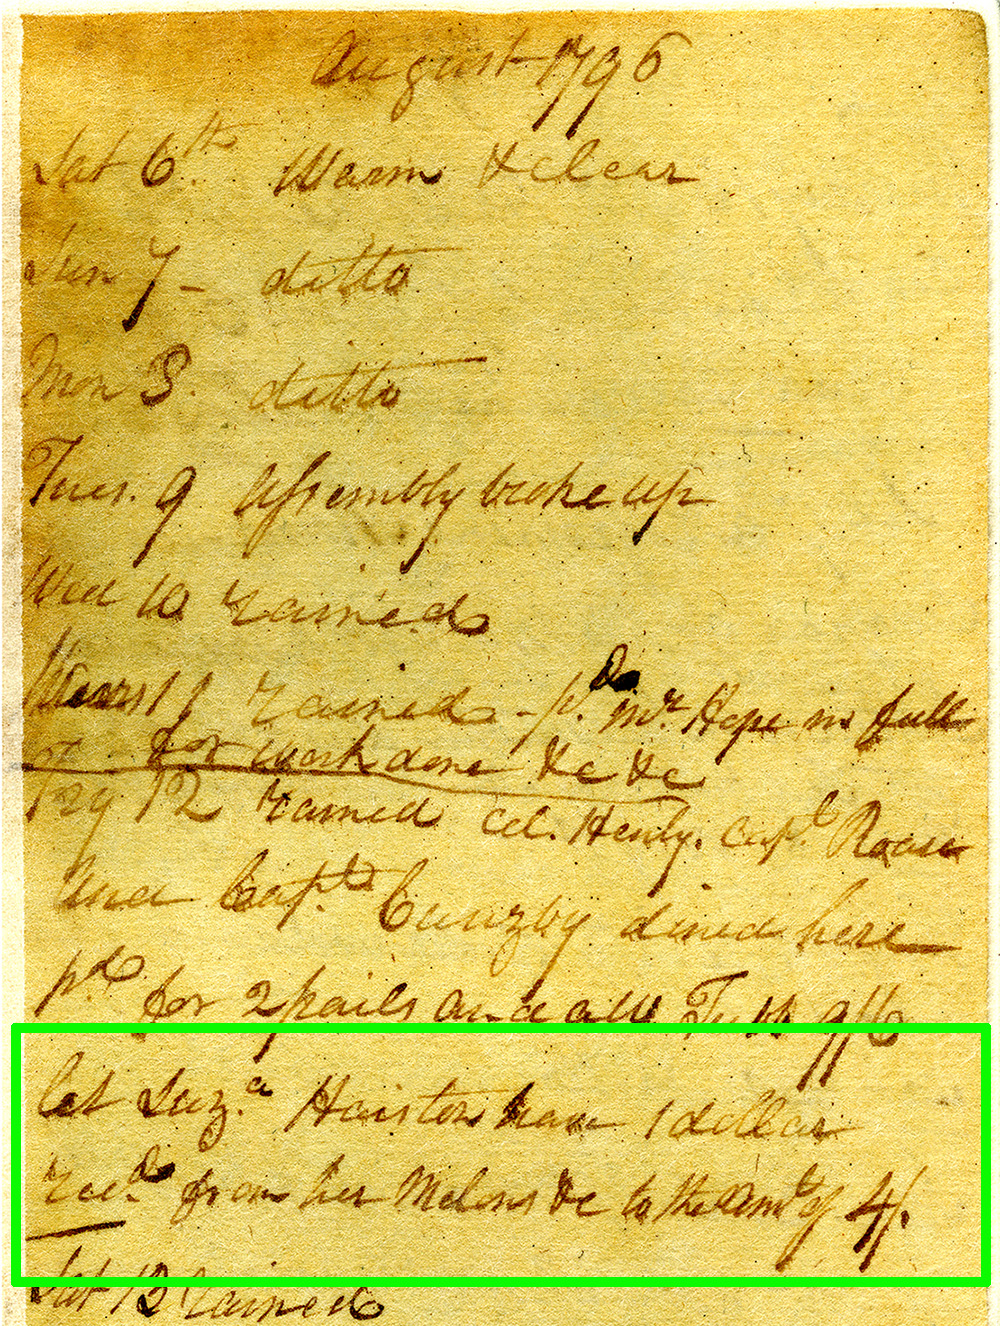 August 1796
Sat 6th. Warm & clear
Sun 7 - ditto
Mon 8. ditto
Tues. 9 Assembly broke up
Wed 10 rained
Thurs 11 rained - pd. Mr. Hope in full
for work done &c &c
Fry 12 rained Col. Henly. Capt. Roane
And Capt. dined here
pd. for 2 pails and a Tubb 9/6
let Suza. Hairston have 1 dollar
Recd. from her Melons &c to the Amt of 4/.
Sat 13 rained